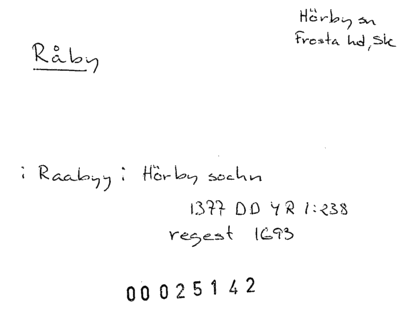 Hörby sn
Frosta hd, Sk
Råby
i Raabyy i Hörby sochn
1377 DD 4 R 1:238
regest 1693
00025142